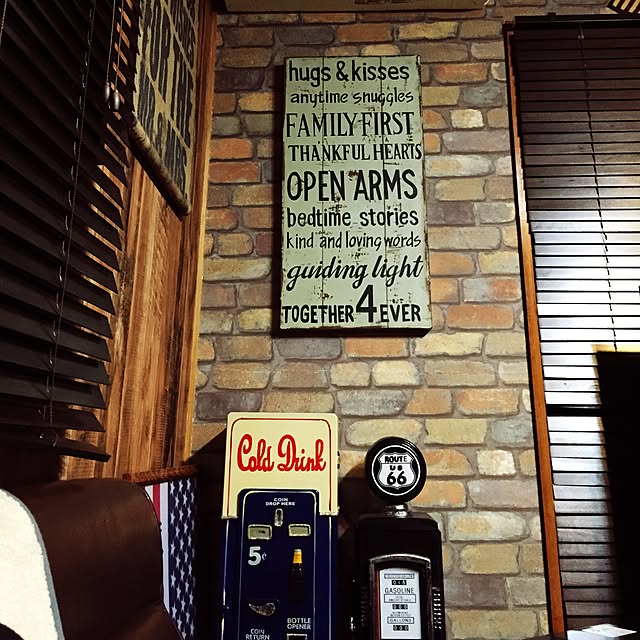 hugs & kisses
anytime snuggles
FAMILY FIRST
THANKFUL HEARTS
OPEN ARMS
bedtime stories
kind and loving words
guiding light
TOGETHER 4 EVER
Cold Drink
COIN
DROP HERE
5¢
BOTTLE
OPENER
COIN
RETURN
ROUTE
US
66
GASOLINE
GALLONS